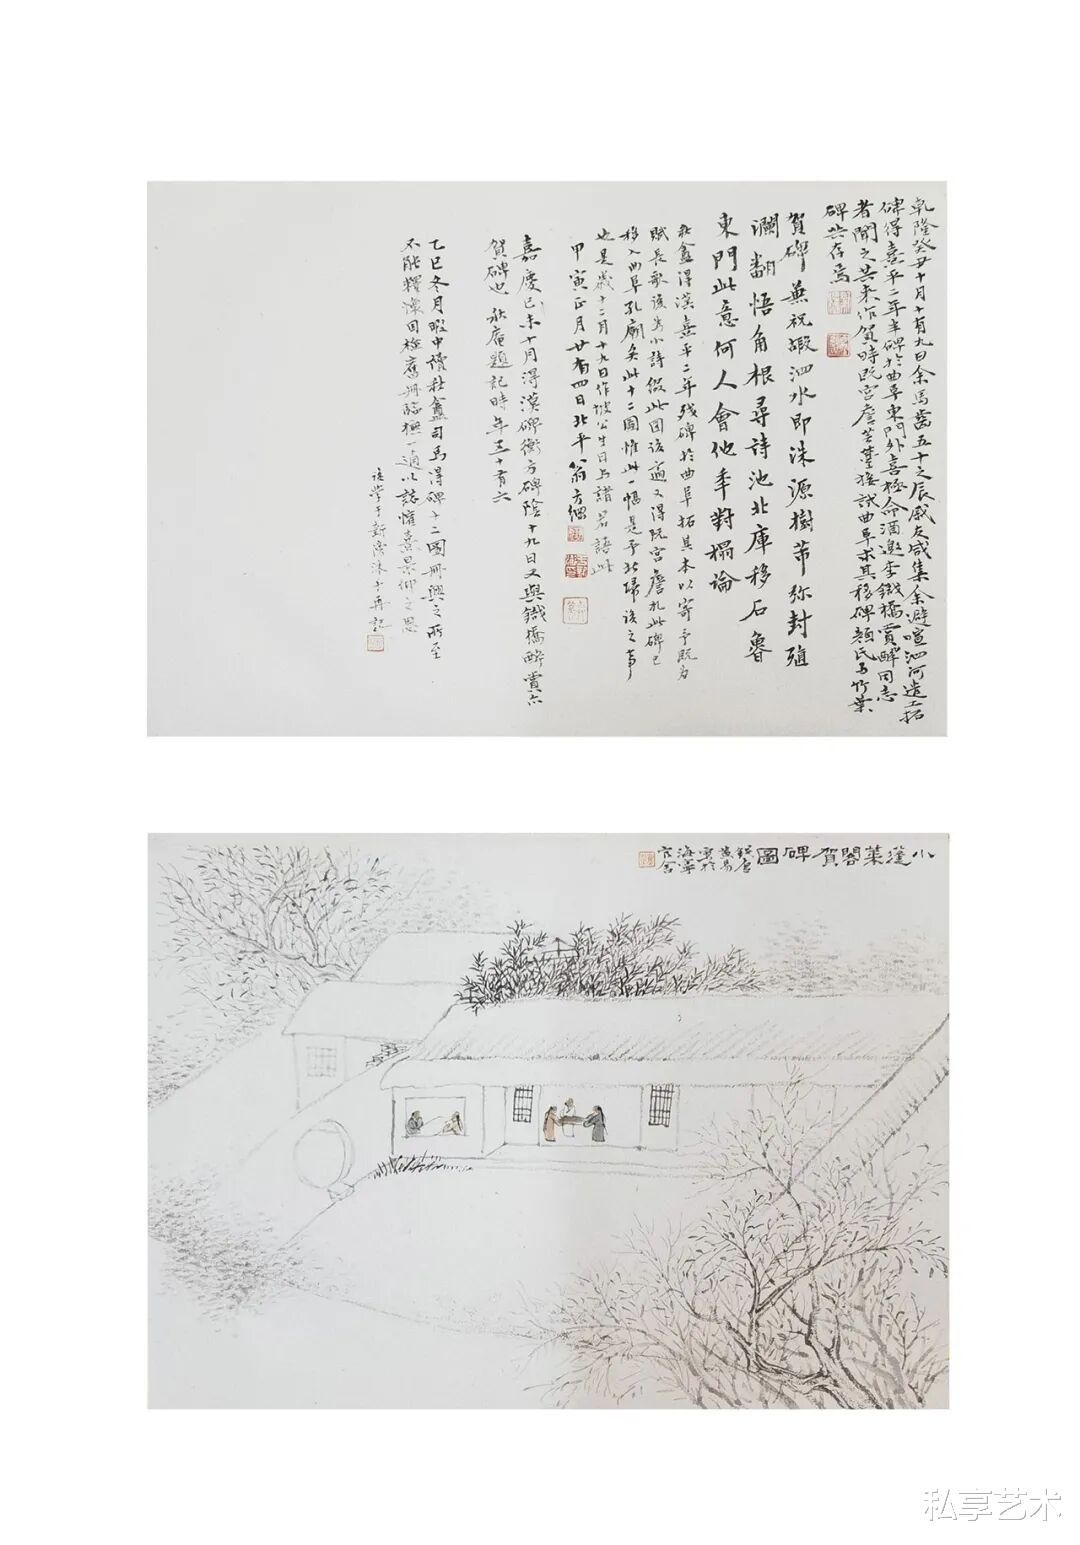 乾隆癸丑十月十有九日余馬齒五十之辰戚友咸集余避喧泗河造工拓
碑得熹平二年半碑於曲阜東門外喜極命酒邀李鐵橋賞醉同志
者聞之共來作賀時阮宮詹芸臺按試曲阜求其移碑顏氏与竹葉
碑共存焉
賀碑兼祝嘏泗水即洙源樹蒂弥封殖
瀾翻悟角根尋詩池北庫移石魯
東門此意何人會他季對榻論
秋盦得漢熹平二年残碑於曲阜拓其本以寄予既为
賦長歌該為小詩綴此图後適又得阮宫詹札此碑已
移入曲阜孔廟矣此十二图惟此一幅是予北歸後之事
也是歲十二月十九日作坡公生日与諸君語此
甲寅正月廿有四日北平翁方綱
嘉慶己未十月得漢碑衡方碑陰十九日又與鐵橋醉賞亦
賀碑也秋庵題記時年五十有六
乙巳冬月暇中讀秋盦司馬得碑十二圖冊興之所至
不能釋懷因檢舊冊臨橅一通以誌懽喜景仰之思
小蓬萊閣賀碑圖
錢唐
黃易
寫於
海寧
官舍
私享艺术